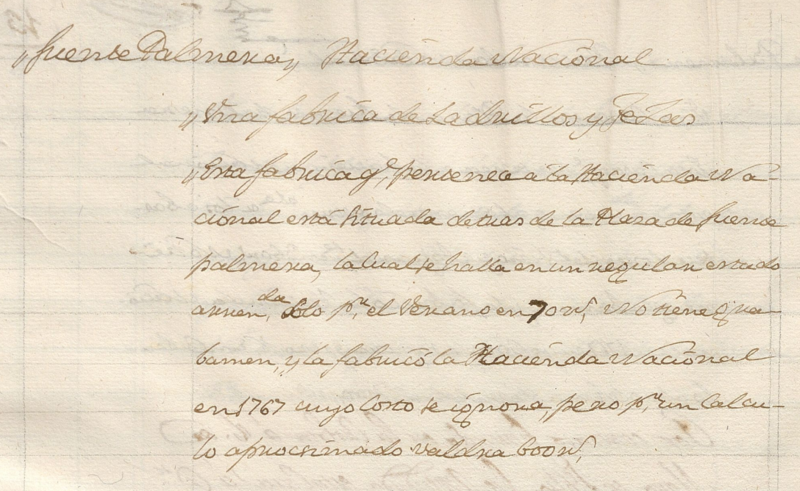 „fuente Palmera„ Hacienda Nacional
„Una fabrica de Ladrillos y Tejas
„Esta fabrica q.e pertenece a la Hacienda Na-
cional está situada detras de la Plaza de fuente
palmera, la Cual se halla en un regular estado
arren.da Solo p.r el Verano en 70 r.s, No tiene gra-
bamen, y la fabricó la Hacienda Nacional
en 1767 cuyo Costo se ignora, pero p.r un Calcu-
lo aprocsimado valdra 600 r.s,